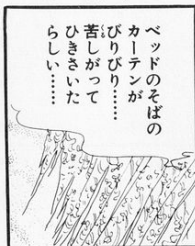 ベッドのそばの
カーテンが
びりびり……
苦しがって
ひきさいた
らしい……